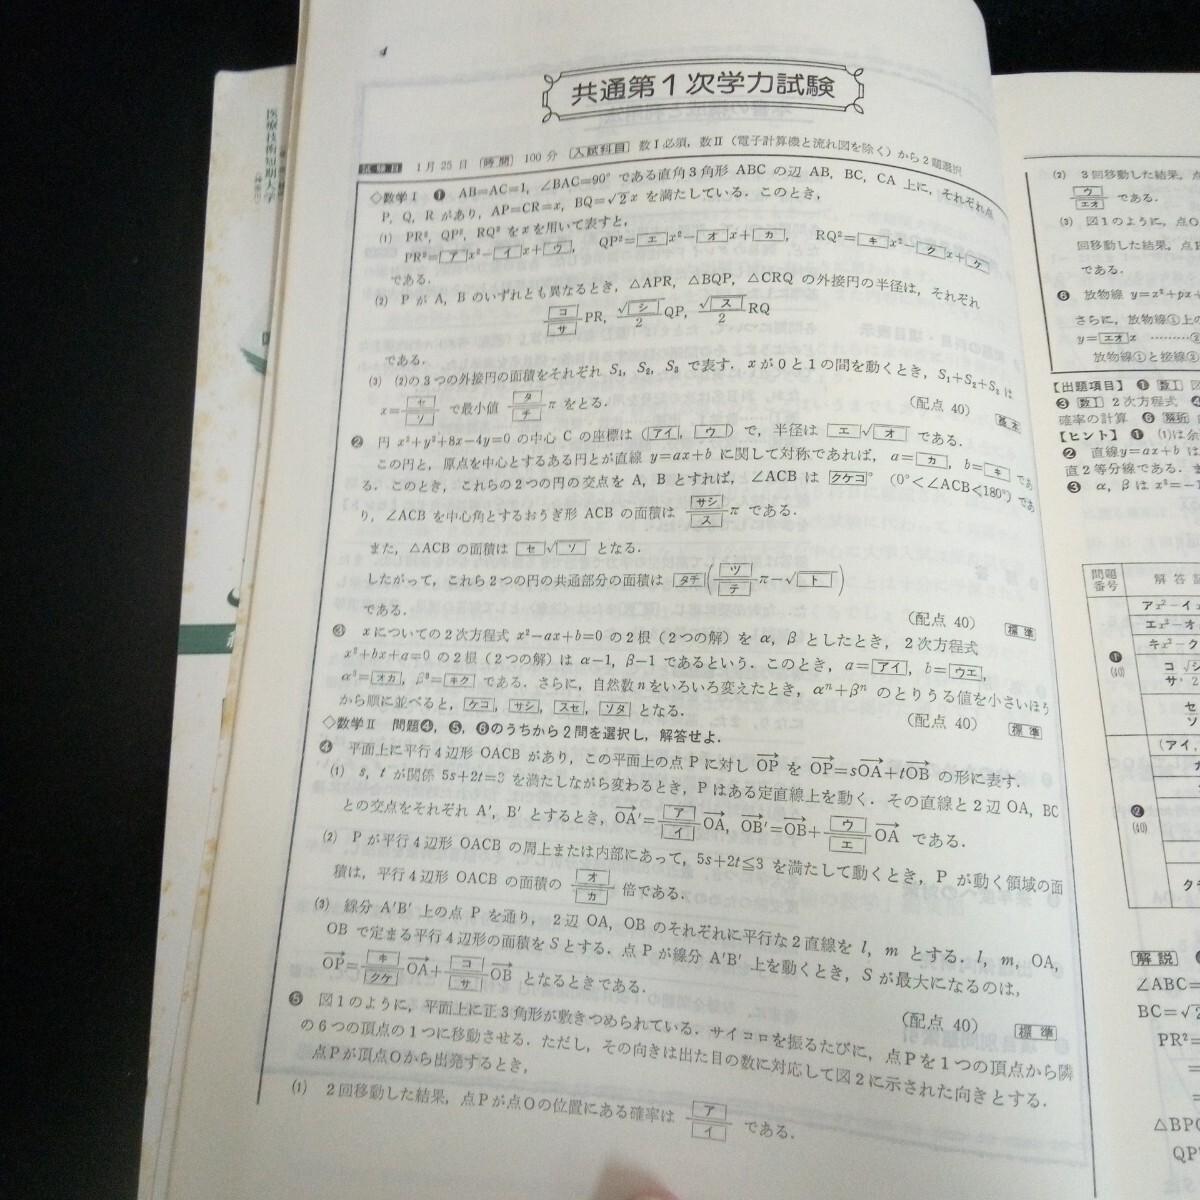 4
共通第1次学力試験
試験日 1月25日 〔時間〕 100分 〔入試科目〕 数Ⅰ必須，数Ⅱ（電子計算機と流れ図を除く）から2題選択
◇数学Ⅰ ❶ AB=AC=1, ∠BAC=90° である直角3角形 ABC の辺 AB, BC, CA 上に，それぞれ点
P, Q, R があり，AP=CR=x, BQ=√2x を満たしている．このとき，
(1) PR², QP², RQ² をxを用いて表すと，
PR²=ア x²−イ x+ウ, QP²=エ x²−オ x+カ, RQ²=キ x²−ク x+ケ
である．
(2) P が A, B のいずれとも異なるとき，△APR, △BQP, △CRQ の外接円の半径は，それぞれ
コ/サ PR, √シ/2 QP, √ス/2 RQ
である．
(3) (2)の3つの外接円の面積をそれぞれ S₁, S₂, S₃ で表す．x が0と1の間を動くとき，S₁+S₂+S₃ は
x=セ/ソ で最小値 タ/チ π をとる． (配点 40) 基本
❷ 円 x²+y²+8x−4y=0 の中心 C の座標は (アイ, ウ) で，半径は エ√オ である．
この円と，原点を中心とするある円とが直線 y=ax+b に関して対称であれば，a=カ, b=キ であ
る．このとき，これらの2つの円の交点を A, B とすれば，∠ACB は クケコ° (0°<∠ACB<180°) であ
り，∠ACB を中心角とするおうぎ形 ACB の面積は サシ/ス π である．
また，△ACB の面積は セ√ソ となる．
したがって，これら2つの円の共通部分の面積は タチ(ツ/テ π−√ト)
である． (配点 40) 標準
❸ xについての2次方程式 x²−ax+b=0 の2根（2つの解）を α, β としたとき，2次方程式
x²+bx+a=0 の2根（2つの解）は α−1, β−1 であるという．このとき，a=アイ, b=ウエ,
α³=オカ, β³=キク である．さらに，自然数nをいろいろ変えたとき，αⁿ+βⁿ のとりうる値を小さいほう
から順に並べると，ケコ, サシ, スセ, ソタ となる． (配点 40) 標準
◇数学Ⅱ 問題❹，❺，❻のうちから2問を選択し，解答せよ．
❹ 平面上に平行4辺形 OACB があり，この平面上の点 P に対し OP を OP=sOA+tOB の形に表す．
(1) s, t が関係 5s+2t=3 を満たしながら変わるとき，P はある定直線上を動く．その直線と2辺 OA, BC
との交点をそれぞれ A′, B′ とするとき，OA′=ア/イ OA, OB′=OB+ウ/エ OA である．
(2) P が平行4辺形 OACB の周上または内部にあって，5s+2t≦3 を満たして動くとき，P が動く領域の面
積は，平行4辺形 OACB の面積の オ/カ 倍である．
(3) 線分 A′B′ 上の点 P を通り，2辺 OA, OB のそれぞれに平行な2直線を l, m とする．l, m, OA,
OB で定まる平行4辺形の面積をSとする．点Pが線分 A′B′ 上を動くとき，S が最大になるのは，
OP=キ/クケ OA+コ/サ OB となるときである． (配点 40) 標準
❺ 図1のように，平面上に正3角形が敷きつめられている．サイコロを振るたびに，点Pを1つの頂点から隣
の6つの頂点の1つに移動させる．ただし，その向きは出た目の数に対応して図2に示された向きとする．
点Pが頂点Oから出発するとき，
(1) 2回移動した結果，点Pが点Oの位置にある確率は ア/イ である．
(2) 3回移動した結果，点
ウ/エオ である．
(3) 図1のように，点O
回移動した結果，点P
である．
❻ 放物線 y=x²+px+
さらに，放物線①上の
y=エオ x ………②
放物線①と接線②
【出題項目】 ❶ 数Ⅰ 図
❸ 数Ⅰ 2次方程式 ❹
確率の計算 ❻ 解析
【ヒント】 ❶ (1)は余
❷ 直線y=ax+b は
直2等分線である．ま
❸ α, β は x²=−1
問題番号 解答記
❶ (40)
アx²−イx
エx²−オ
キx²−ク
コ √シ
サ , 2
セ
ソ
❷ (40)
(アイ,
解説
∠ABC=
BC=√2
PR²=
=
=
△BPQ
QP²
医療技術短期大学